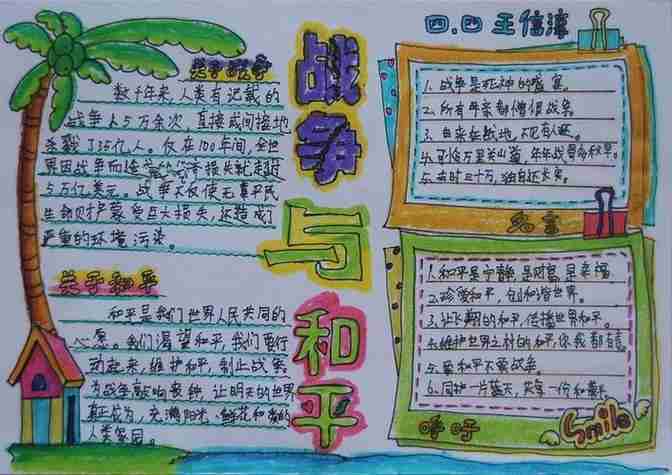 四.四 王信滢
战争与和平
关于战争
数千年来,人类有记载的
战争人5万余次,直接或间接地
杀戮了35亿人。仅在100年间,全世
界因战争而造成的经济损失就超过
5万亿美元。战争不仅使无辜平民
生命财产蒙受巨大损失,还造成了
严重的环境污染。
关于和平
和平是我们世界人民共同的
心愿。我们渴望和平,我们要行
动起来,维护和平,制止战争
为战争敲响丧钟,让明天的世界
真正成为,充满阳光、鲜花和爱的
人类家园。
1.战争是死神的盛宴。
2.所有母亲都憎恨战争。
3.自来征战地,不见有人还。
4.可怜万里关山道,年年战骨多秋草。
5.去时三十万,独自还长安。
名言
1.和平是宁静,是财富,是幸福
2.珍爱和平,创和谐世界。
3.让飞翔的和平,传播世界和平。
4.维护世界之村的和平,你我都有责
5.要和平不要战争。
6.同护一片蓝天,共享一份和平
呼吁
Smile